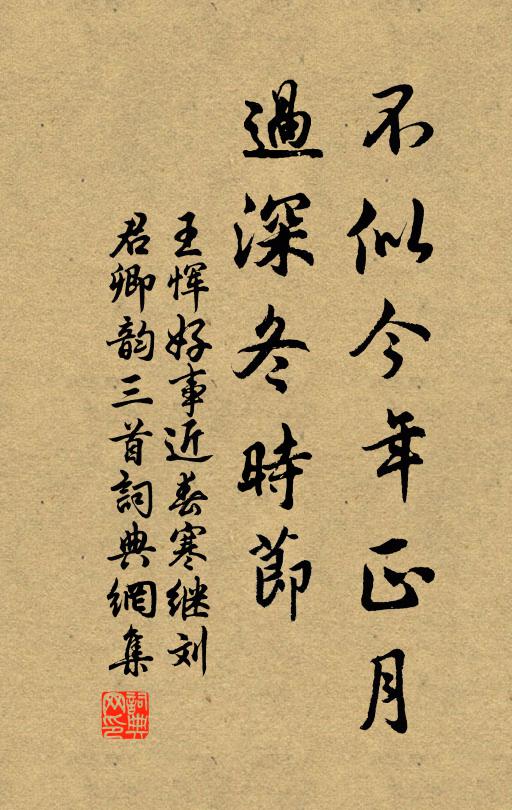 不似今年正月
過深冬時節
王恽好事近春寒继刘
君卿韵三首詞典網集
詞典
网印